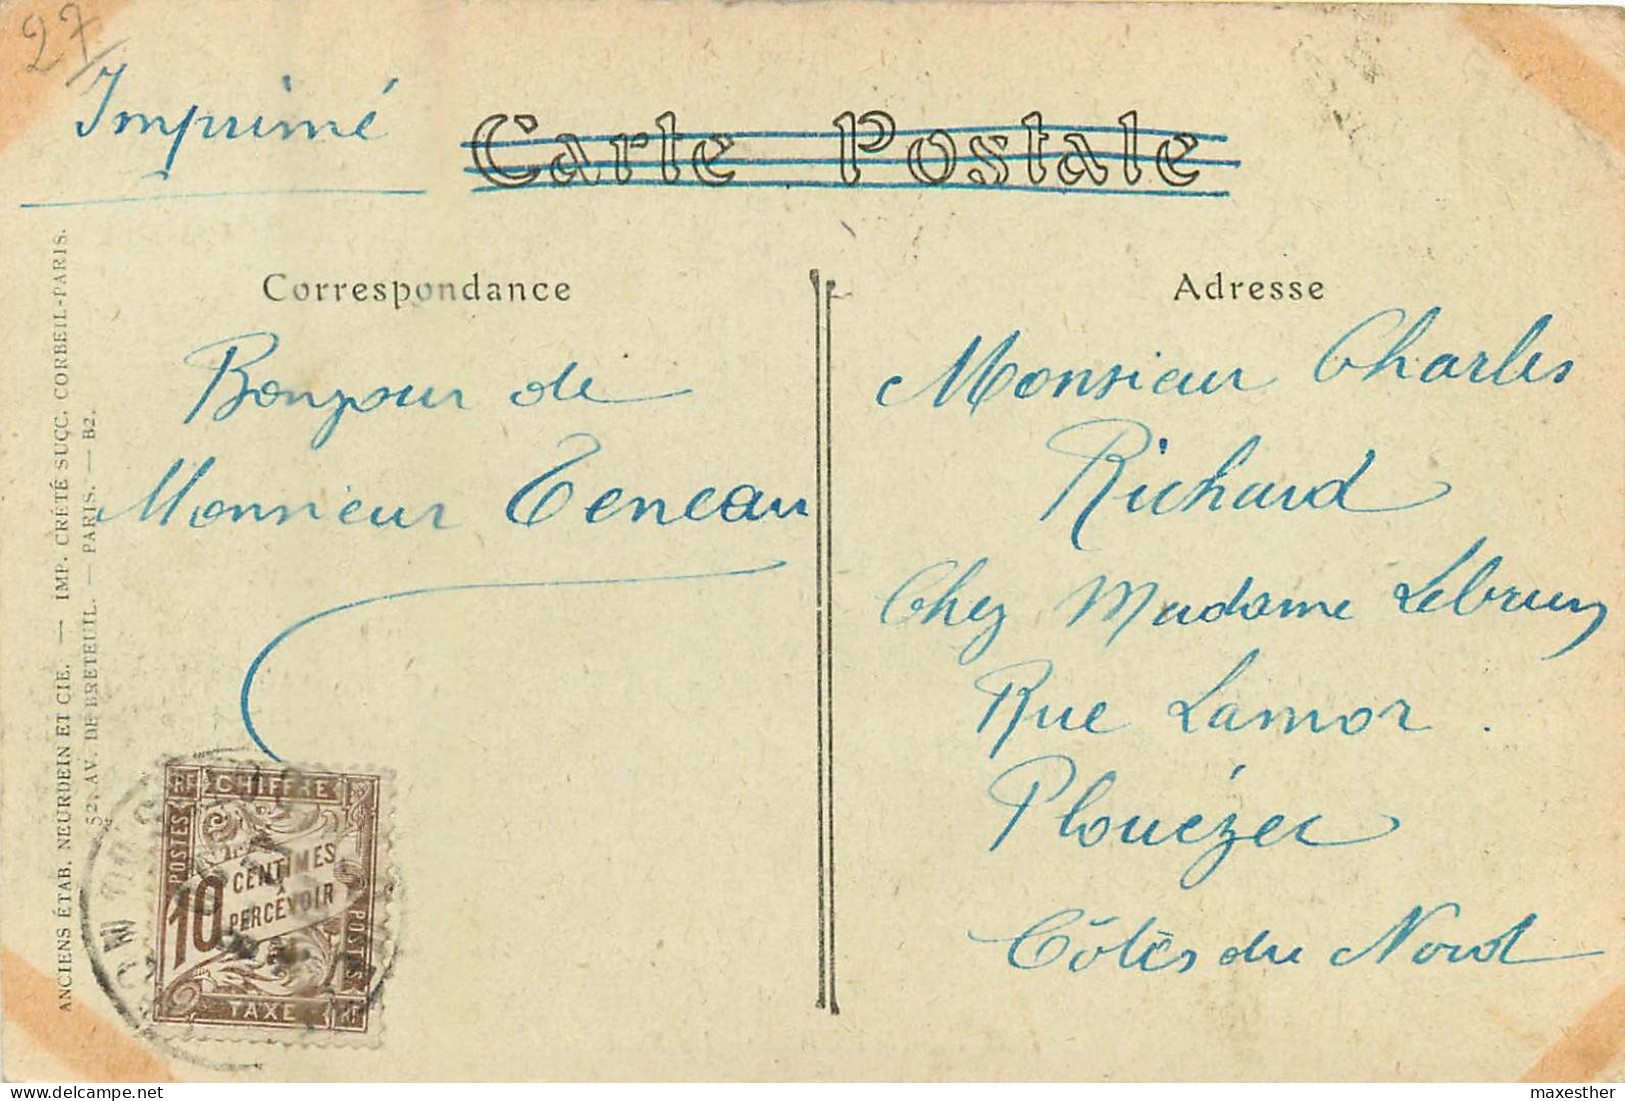 27
Imprimé
Carte Postale
Correspondance
Adresse
Bonjour de
Monsieur Teneau
Monsieur Charles
Richard
Chez Madame Lebrun
Rue Lamor.
Plouézec
Côtes du Nord
ANCIENS ÉTAB. NEURDEIN ET CIE. — IMP. CRÉTÉ SUCC. CORBEIL-PARIS.
52, AV. DE BRETEUIL. — PARIS. — B2.
RF CHIFFRE
POSTES
10 CENTIMES
A
PERCEVOIR
POSTES
TAXE RF
maxesther